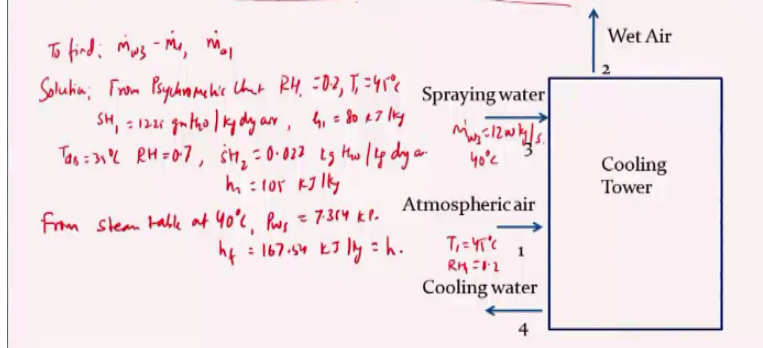 To find: ṁw3 - ṁ4, ṁa1
Solution: From Psychrometric Chart RH1 = 0.2, T1 = 45°C
SH1 = 12.25 gm H2O / kg dry air, h1 = 80 kJ/kg
Tdb = 35°C RH = 0.7, SH2 = 0.027 kg H2O / kg dry air
h2 = 105 kJ/kg
From steam table at 40°C, Pws = 7.384 kPa
hf = 167.54 kJ/kg = h.
Wet Air
2
Spraying water
ṁw3 = 1200 kg/s.
3
40°C
Cooling
Tower
Atmospheric air
T1 = 45°C
1
RH1 = 0.2
Cooling water
4